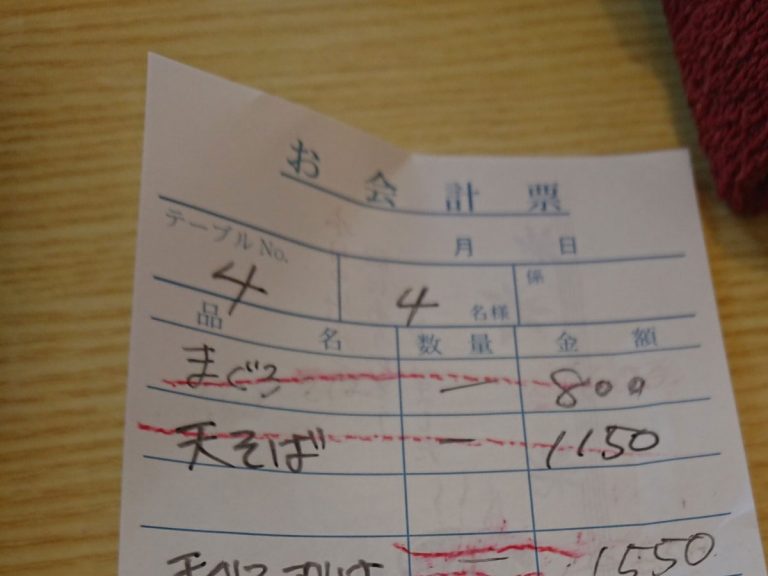 お会計票
月 日
テーブルNo. 4 4 名様 係
品名 数量 金額
まぐろ 一 800
天そば 一 1150
一 1550